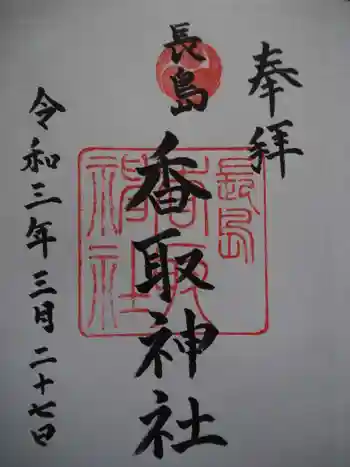 奉拝
長島
香取神社
長島
香取神社
令和三年三月二十七日